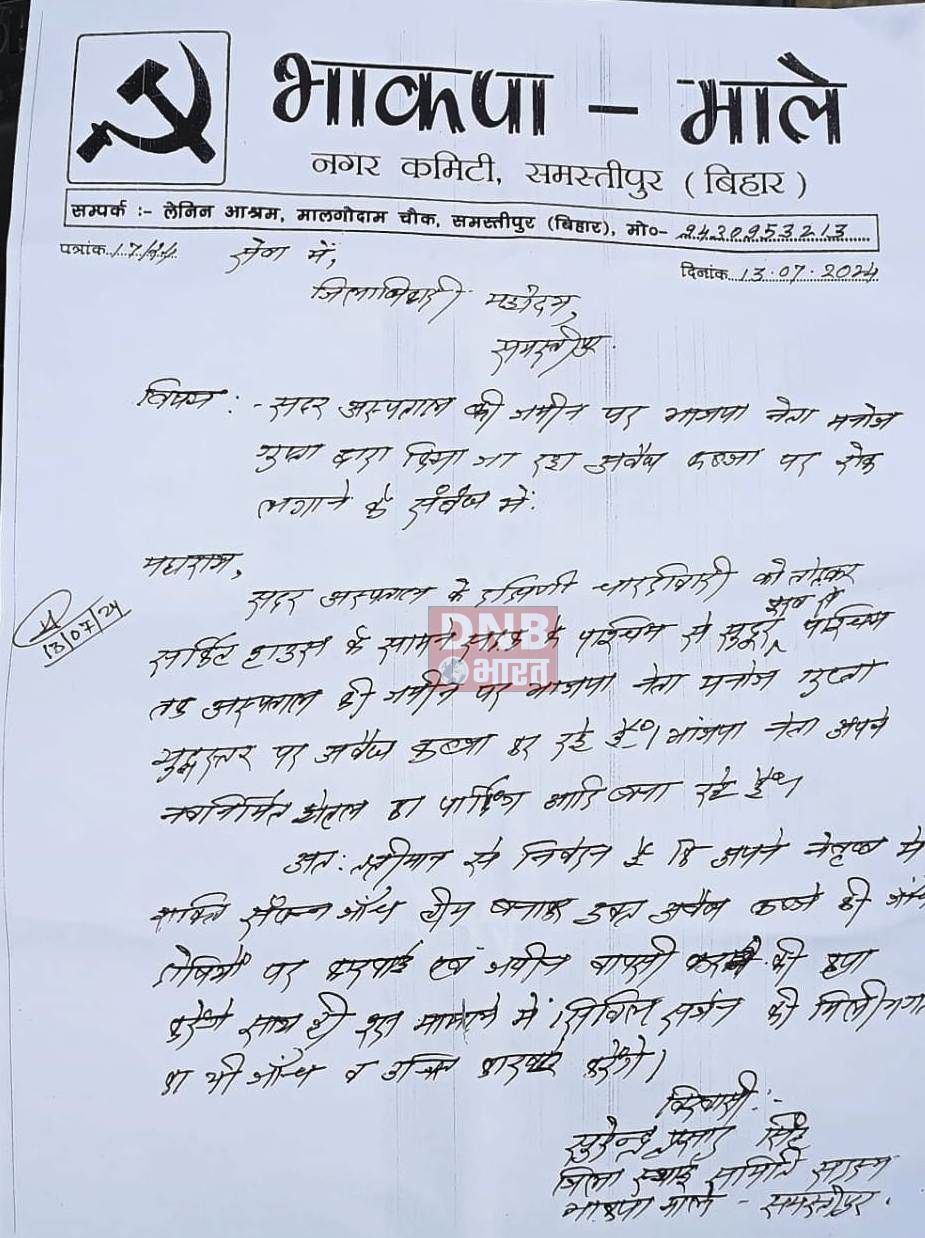 भाकपा – माले
नगर कमिटी, समस्तीपुर (बिहार)
सम्पर्क :- लेनिन आश्रम, मालगोदाम चौक, समस्तीपुर (बिहार), मो०- 9430953213
पत्रांक 17/24
दिनांक 13.07.2024
सेवा में,
जिलाधिकारी महोदय,
समस्तीपुर.
विषय : - सदर अस्पताल की जमीन पर भाजपा नेता मनोज
गुप्ता द्वारा किया जा रहा अवैध कब्जा पर रोक
लगाने के संबंध में.
महाशय,
सदर अस्पताल के दक्षिणी चारदिवारी को तोड़कर
सर्किट हाउस के सामने सड़क के पश्चिम से सुदूर पश्चिम
तक अस्पताल की जमीन पर भाजपा नेता मनोज गुप्ता
युद्धस्तर पर अवैध कब्जा कर रहे हैं। भाजपा नेता अपने
नवनिर्मित होटल का पार्किंग आदि बना रहे हैं।
अत: श्रीमान से निवेदन है कि अपने नेतृत्व में
शक्ति संपन्न जाँच टीम बनाकर उक्त अवैध कब्जे की जाँच
दोषियों पर कारवाई एवं जमीन वापसी की कृपा
करेंगे साथ ही इस मामले में सिविल सर्जन की मिलीभगत
का भी जाँच व उचित कारवाई करेंगे।
विश्वासी :-
सुरेन्द्र प्रसाद सिंह
जिला स्थाई समिति सदस्य
भाकपा माले - समस्तीपुर.
13/07/24
DNB
भारत